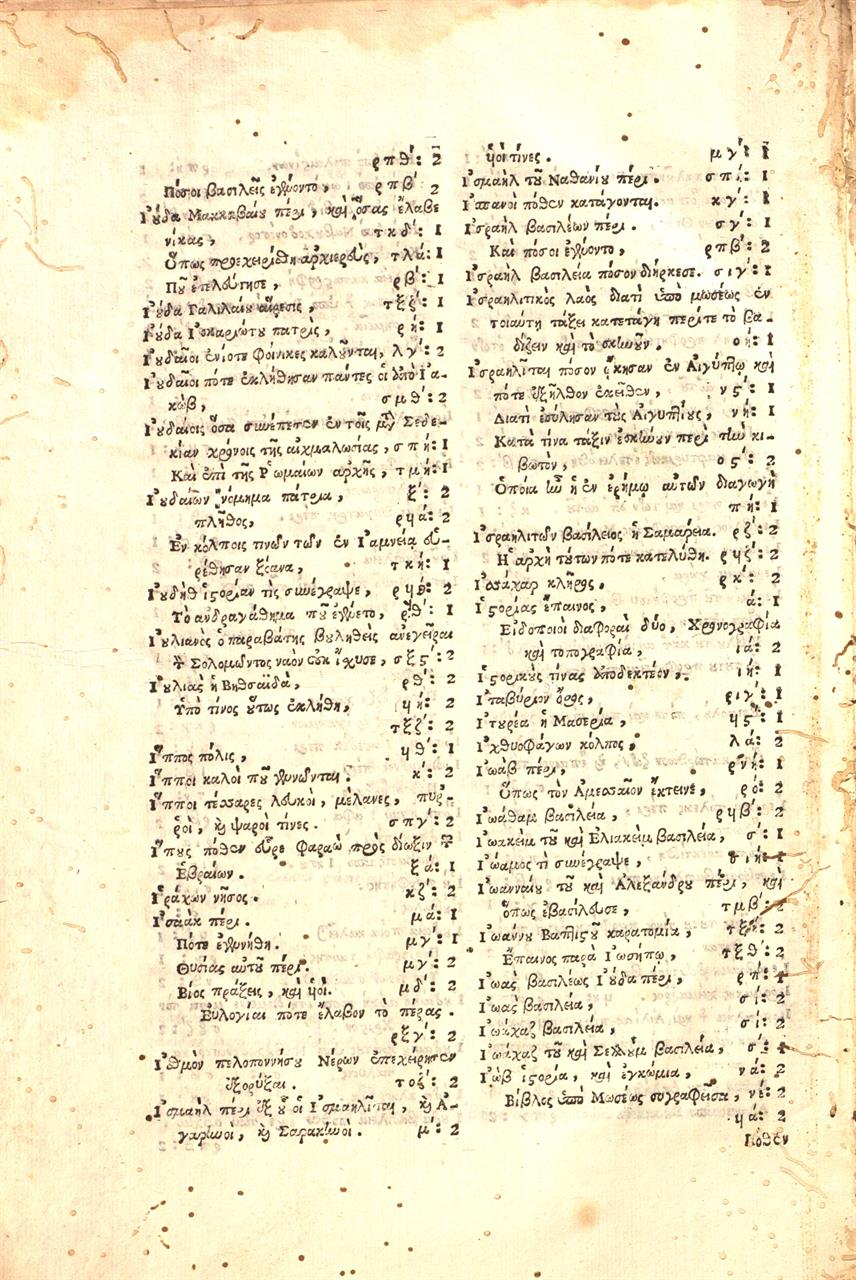 ρπθʹ: 2
Πόσοι βασιλεῖς ἐγένοντο, ρπβʹ 2
Ἰούδα Μακκαβαίου πέρι, καὶ ὅσας ἔλαβε
νίκας, τκδʹ: 1
Ὅπως προεχειρίσθη ἀρχιερεὺς, τλάʹ: 1
Ποῦ ἐτελεύτησε, ρβʹ: 1
Ἰούδα Γαλιλαίου αἵρεσις, τξζʹ: 1
Ἰούδα Ἰσκαριώτου πατρὶς, ρήʹ: 1
Ἰουδαῖοι ἐνίοτε Φοίνικες καλοῦνται, λγʹ: 2
Ἰουδαῖοι πότε ἐκλήθησαν πάντες οἱ ἀπὸ Ἰα-
κὼβ, σμθʹ: 2
Ἰουδαίοις ὅσα συνέπεσεν ἐν τοῖς μετὰ Σεδε-
κίαν χρόνοις τῆς αἰχμαλωσίας, σπήʹ: 1
Καὶ ἐπὶ τῆς Ῥωμαίων ἀρχῆς, τμήʹ: 1
Ἰουδαίων νόμιμα πάτρια, ξʹ: 2
πλῆθος, ρϟάʹ: 2
Ἐν κόλποις τινῶν τῶν ἐν Ἰαμνείᾳ εὑ-
ρέθησαν ξόανα, τκήʹ: 1
Ἰουδὴθ ἱστορίαν τὶς συνέγραψε, ρϟέʹ: 2
Τὸ ἀνδραγάθημα ποῦ ἐγένετο, ρθʹ: 1
Ἰουλιανὸς ὁ παραβάτης βουληθεὶς ἀνεγεῖραι
τὸν Σολομῶντος ναὸν οὐκ ἴχυσε, σξςʹ: 2
Ἰουλιὰς ἡ Βηθσαϊδὰ, ρθʹ: 2
Ὑπὸ τίνος οὕτως ἐκλήθη, ϟήʹ: 2
τξζʹ: 2
Ἵππος πόλις, ϟθʹ: 1
Ἵπποι καλοὶ ποῦ γίνωνται. κʹ: 2
Ἵπποι τέσσαρες λευκοὶ, μέλανες, πυρ-
ῥοὶ, καὶ ψαροὶ τίνες. σπγʹ: 2
Ἵππους πόθεν εὗρε Φαραὼ πρὸς δίωξιν τῶν
Ἑβραίων. ξάʹ: 1
Ἱράκων νῆσος. κζʹ: 2
Ἰσαὰκ πέρι. μάʹ: 1
Πότε ἐγεννήθη. μγʹ: 1
Θυσίας αὐτοῦ πέρι. μγʹ: 2
Βίος πράξεις, καὶ ὑοί. μδʹ: 2
Εὐλογίαι πότε ἔλαβον τὸ πέρας.
ρξγʹ: 2
Ἰσθμὸν πελοποννήσου Νέρων ἐπεχείρησεν
ἐξορύξαι. τοζʹ: 2
Ἰσμαὴλ πέρι ἐξ οὗ οἱ Ἰσμαηλῖται, καὶ Ἀ-
γαρηνοὶ, καὶ Σαρακηνοί. μʹ: 2
ὑοὶ τίνες. μγʹ: 1
Ἰσμαὴλ τοῦ Ναθανίου πέρι. σπίʹ: 1
Ἰσπανοὶ πόθεν κατάγονται. κγʹ: 1
Ἰσραὴλ βασιλέων πέρι. σγʹ: 1
Καὶ πόσοι ἐγένοντο, ρπβʹ: 2
Ἰσραὴλ βασιλεία πόσον διήρκεσε. σιγʹ: 1
Ἰσραηλιτικὸς λαὸς διατὶ ὑπὸ μωσέως ἐν
τοιαύτῃ τάξει κατετάγη περίτε τὸ βα-
δίζειν καὶ τὸ σκηνοῦν. οήʹ: 1
Ἰσραηλῖται πόσον ᾤκησαν ἐν Αἰγύπτῳ καὶ
πότε ἐξῆλθον ἐκεῖθεν, νςʹ: 1
Διατὶ ἐσύλησαν τοὺς Αἰγυπτίους, νήʹ: 1
Κατὰ τίνα τάξιν ἐσκήνουν περὶ τὴν κι-
βωτὸν, οςʹ: 2
Ὁποία ἦν ἡ ἐν ἐρήμῳ αὐτῶν διαγωγὴ
πήʹ: 1
Ἰσραηλιτῶν βασίλειος ἡ Σαμάρεια. ρζʹ: 2
Ἡ ἀρχὴ τούτων πότε κατελύθη. ρϟζʹ: 2
Ἰσάχαρ κλῆρος, ρκʹ: 2
Ἱστορίας ἔπαινος, άʹ: 1
Εἰδοποιοὶ διαφοραὶ δύο, Χρονογραφία
καὶ τοπογραφία, ιάʹ: 2
Ἱστορικοὺς τίνας ἀποδεκτέον, ιήʹ: 1
Ἰταβύριον ὄρος, ριγʹ: 1
Ἰτυρέα ἡ Μασερία, ϟςʹ: 1
Ἰχθυοφάγων κόλπος, λάʹ: 2
Ἰωὰβ πέρι, ρνήʹ: 1
Ὅπως τὸν Ἀμεσσαῖον ἔκτεινε, ρόʹ: 2
Ἰωάθαμ βασιλεία, ρϟβʹ: 2
Ἰωακεὶμ τοῦ καὶ Ἐλιακεὶμ βασιλεία, σʹ: 1
Ἰώαμος τὶ συνέγραψε,
Ἰωανναίου τοῦ καὶ Ἀλεξάνδρου πέρι, καὶ
ὅπως ἐβασίλευσε, τμβʹ: 2
Ἰωάννου Βαπτιστοῦ καρατομία, τξήʹ: 2
Ἔπαινος παρὰ Ἰωσήπῳ, τξθʹ: 2
Ἰωὰς βασιλέως Ἰούδα πέρι, ρήʹ: 1
Ἰωὰς βασιλεία, σίʹ: 2
Ἰωάχαζ βασιλεία, σίʹ: 2
Ἰωάχαζ τοῦ καὶ Σελλοὺμ βασιλεία, σʹ: 1
Ἰὼβ ἱστορία, καὶ ἐγκώμια, νάʹ: 2
Βίβλος ὑπὸ Μωσέως συγραφεῖσα, νέʹ: 2
ϟάʹ: 2
Πόθεν